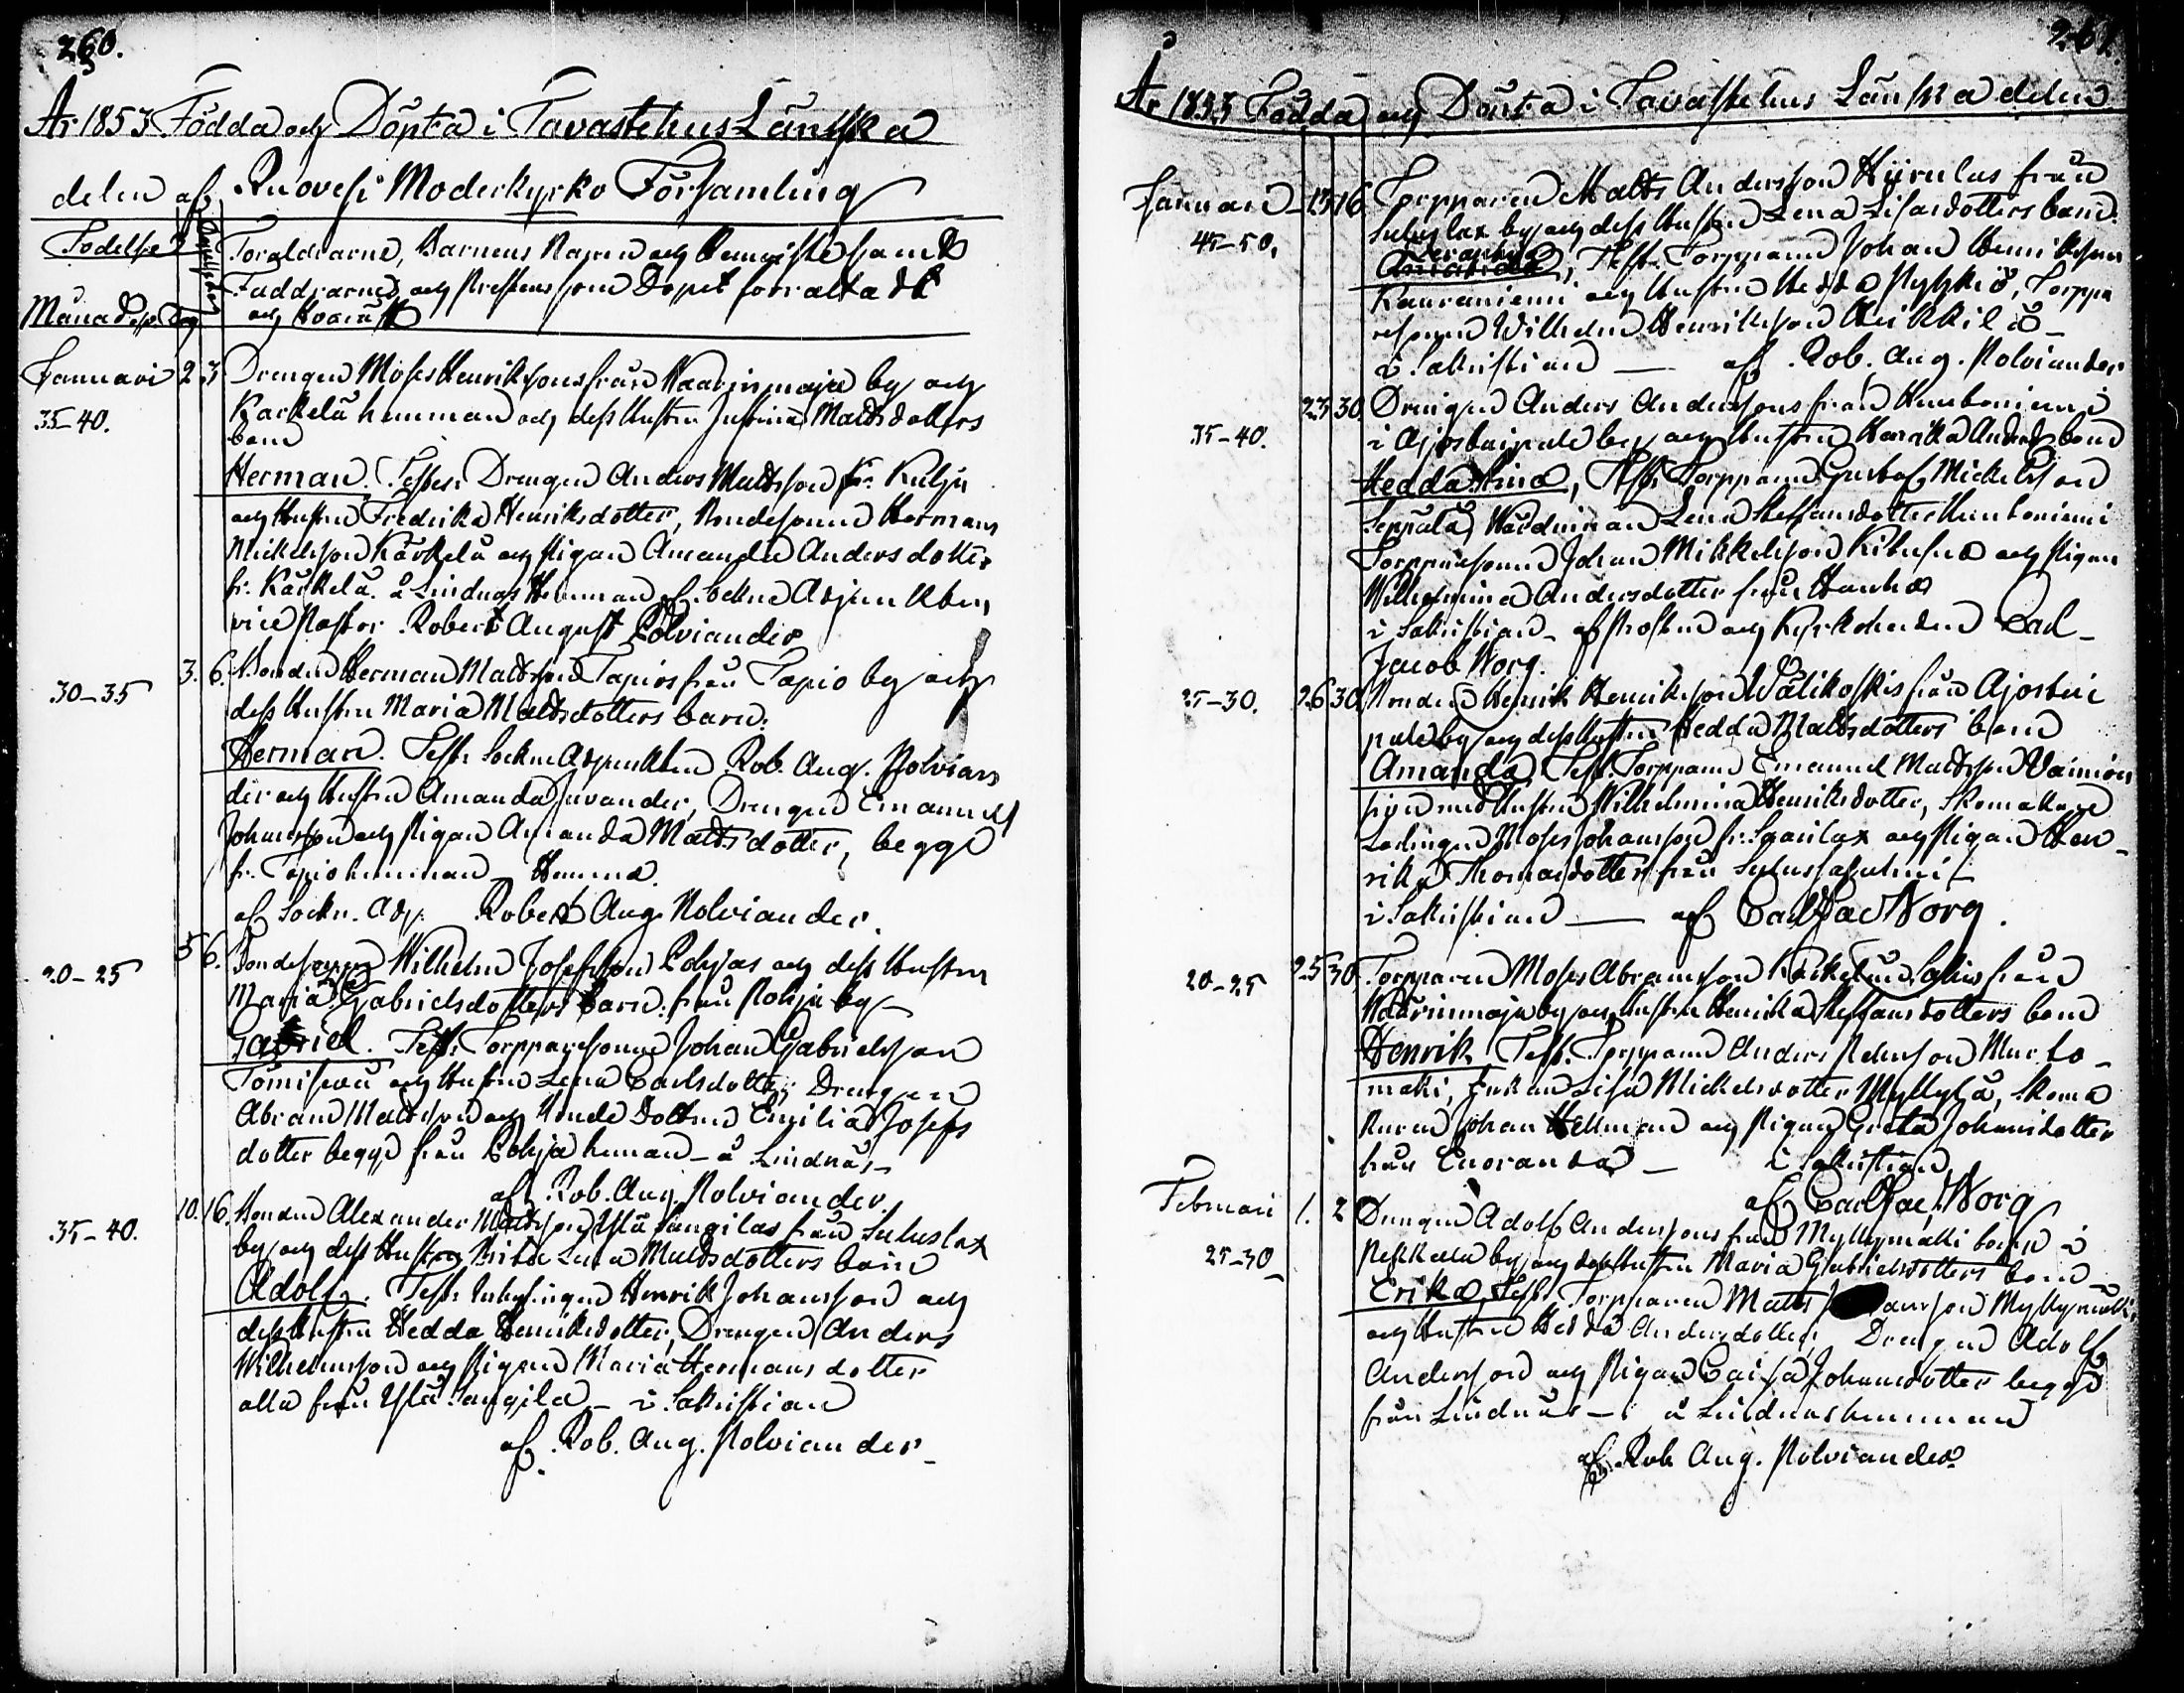 260.
År 1853 Födda och Döpta i Tavastehus Länska
delen af Ruovesi Moderkyrko Församling
Födelse Christen
Föräldrarne, Barnens Namn och Hemviste samt
Faddrarne, och Prestens som Dopet förrättadt
Månad Dag och hvarest
Januari 2 3 Drengen Moses Henrikssons från Waarinmaja by och
35-40. Karkela hemman och dess Hustru Justina Mattsdotters
barn
Herman. Testes. Drengen Anders Mattsson fr.
och Hustru Fredrika Henriksdotter, Bondesonen Herman
Mickelsson Kärkelä och Pigan Amanda Andersdotter
fr. Kärkelä. å Lindnäs Hemman af Sockne Adjunkten
vice Pastor Robert August Polviander
30-35 3. 6. Bonden Herman Mattsson Tapios från Tapio by och
dess Hustru Maria Mattsdotters barn:
Herman. Test: Sockne Adjunkten Rob. Aug. Polvian
der och Hustru Amanda, Drengen Emanuel
Johansson och Pigan Amanda Mattsdotter, begge
fr. Tapio hemman - Hemma.
af Sockn. Adj. Robert Aug. Polviander.
20-25 5 6. Bondesonen Wilhelm Josefsson Pohjas och dess Hustru
Maria Gabrielsdotters barn: från Pohja by
Gabriel. Test: Torpparesonen Johan Gabrielsson
och Hustru Lena Carlsdotter, Drengen
Abram Mattsson och Bonde Dottren Emilia Josefs
dotter begge från Pohja heman - å Lindnäs -
af Rob. Aug. Polviander.
35-40. 10. 16. Bonden Alexander Mattsson Ylä Sangilas från Suluslax
by och dess Hustru Brita Lena Mattsdotters barn
Adolf. Test: Inhysingen Henrik Johansson och
dess Hustru Hedda Henriksdotter, Drengen Anders
Wilhelmsson och Pigan Maria Hermansdotter
alla från Ylä Sangila - i Sakristian
af Rob. Aug. Polviander -
261.
År 1853 Födda och Döpta i Tavastehus Länska delen
Januari 15 16 Torpparen Matts Andersson Hiirulas från
45-50. Suluslax by och dess Hustru Lena Lisasdotters barn.
Test. Torpparen Johan Henriksson
Kauraniemi och Hustru Hedda, Torppa
resonen Wilhelm Henriksson Heikkilä -
i Sakristian - af Rob. Aug. Polviander
35-40. 23 30 Drengen Anders Anderssons från
i by och Hustru Henrika Andersd. barn
Hedda Stina, Test. Torpparen Gustaf Mickelsson
Seppälä, Lena Steffansdotter
Torpparesonen Johan Mikkelsson och Pigan
Wilhelmina Andersdotter från Hanho
i Sakristian - af Prosten och Kyrkoherden Carl
Jacob Borg.
25-30. 26 30 Bonden Henrik Henriksson Wälikoskis från Ajostai
pale by och dess Hustru Hedda Mattsdotters barn
Amanda. Test. Torpparen Emanuel Mattsson
med Hustru Wilhelmina Henriksdotter, Skomakare
Lärlingen Moses Johansson fr. och Pigan Hen-
rika Thomasdotter från
i Sakristian - af Carl Jac. Borg.
20-25 25 30 Torpparen Moses Abramsson från
Waarinmaja by och Hustru Henrika Steffansdotters barn
Henrik. Test. Torpparen Anders Mur to-
mäki, Enkan Lisa Mickelsdotter Myllylä, Skoma
karen Johan Hellman och Pigan Greta Johansdotter
från Enoranda - i Sakristian
af Carl Jac. Borg
Februari 1. 2 Drengen Adolf Anderssons från Myllymäki torp i
25-30 Pekkala by och dess Hustru Maria Gabrielsdotters barn -
Erika, Test. Torpparen Matts Myllymäki,
och Hustru Hedda Andersdotter, Drengen Adolf
Andersson och Pigan Caisa Johansdotter begge
från Lindnäs - å Lindnäs hemman
af Rob. Aug. Polviander